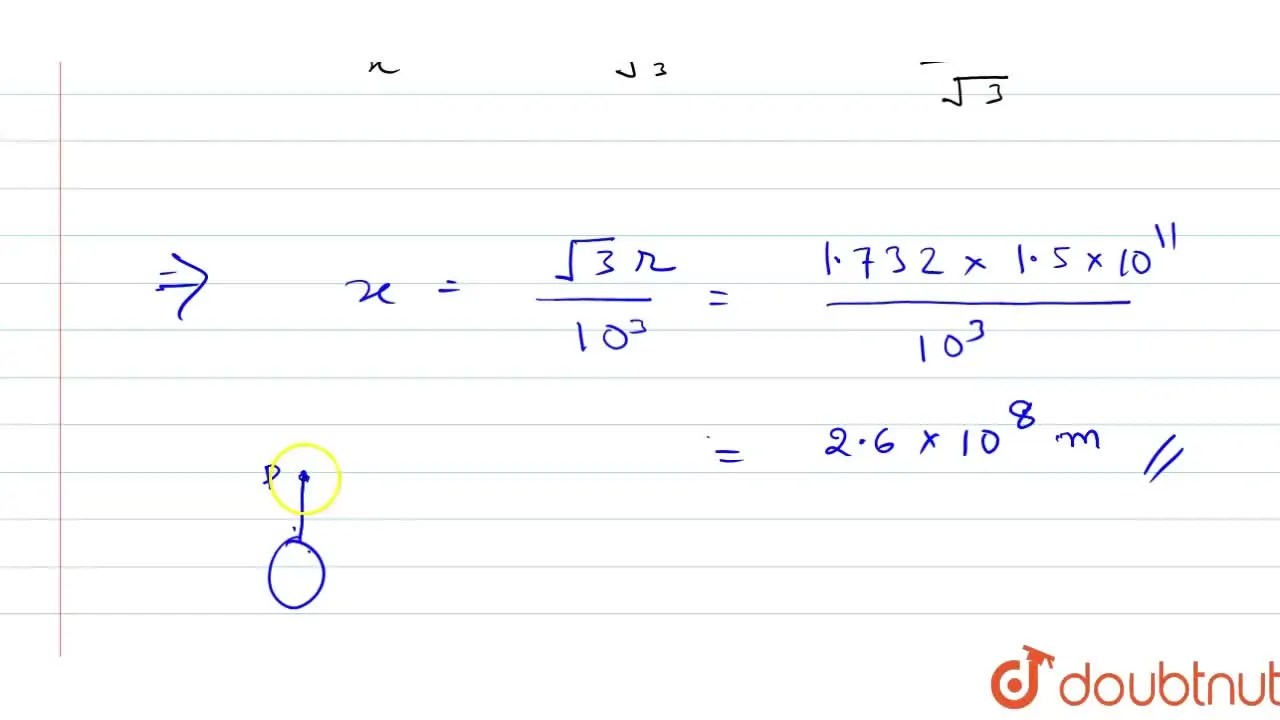 x √3 √3
⇒ x = √3 r / 10³ = 1.732 × 1.5 × 10¹¹ / 10³
= 2.6 × 10⁸ m //
P
doubtnut